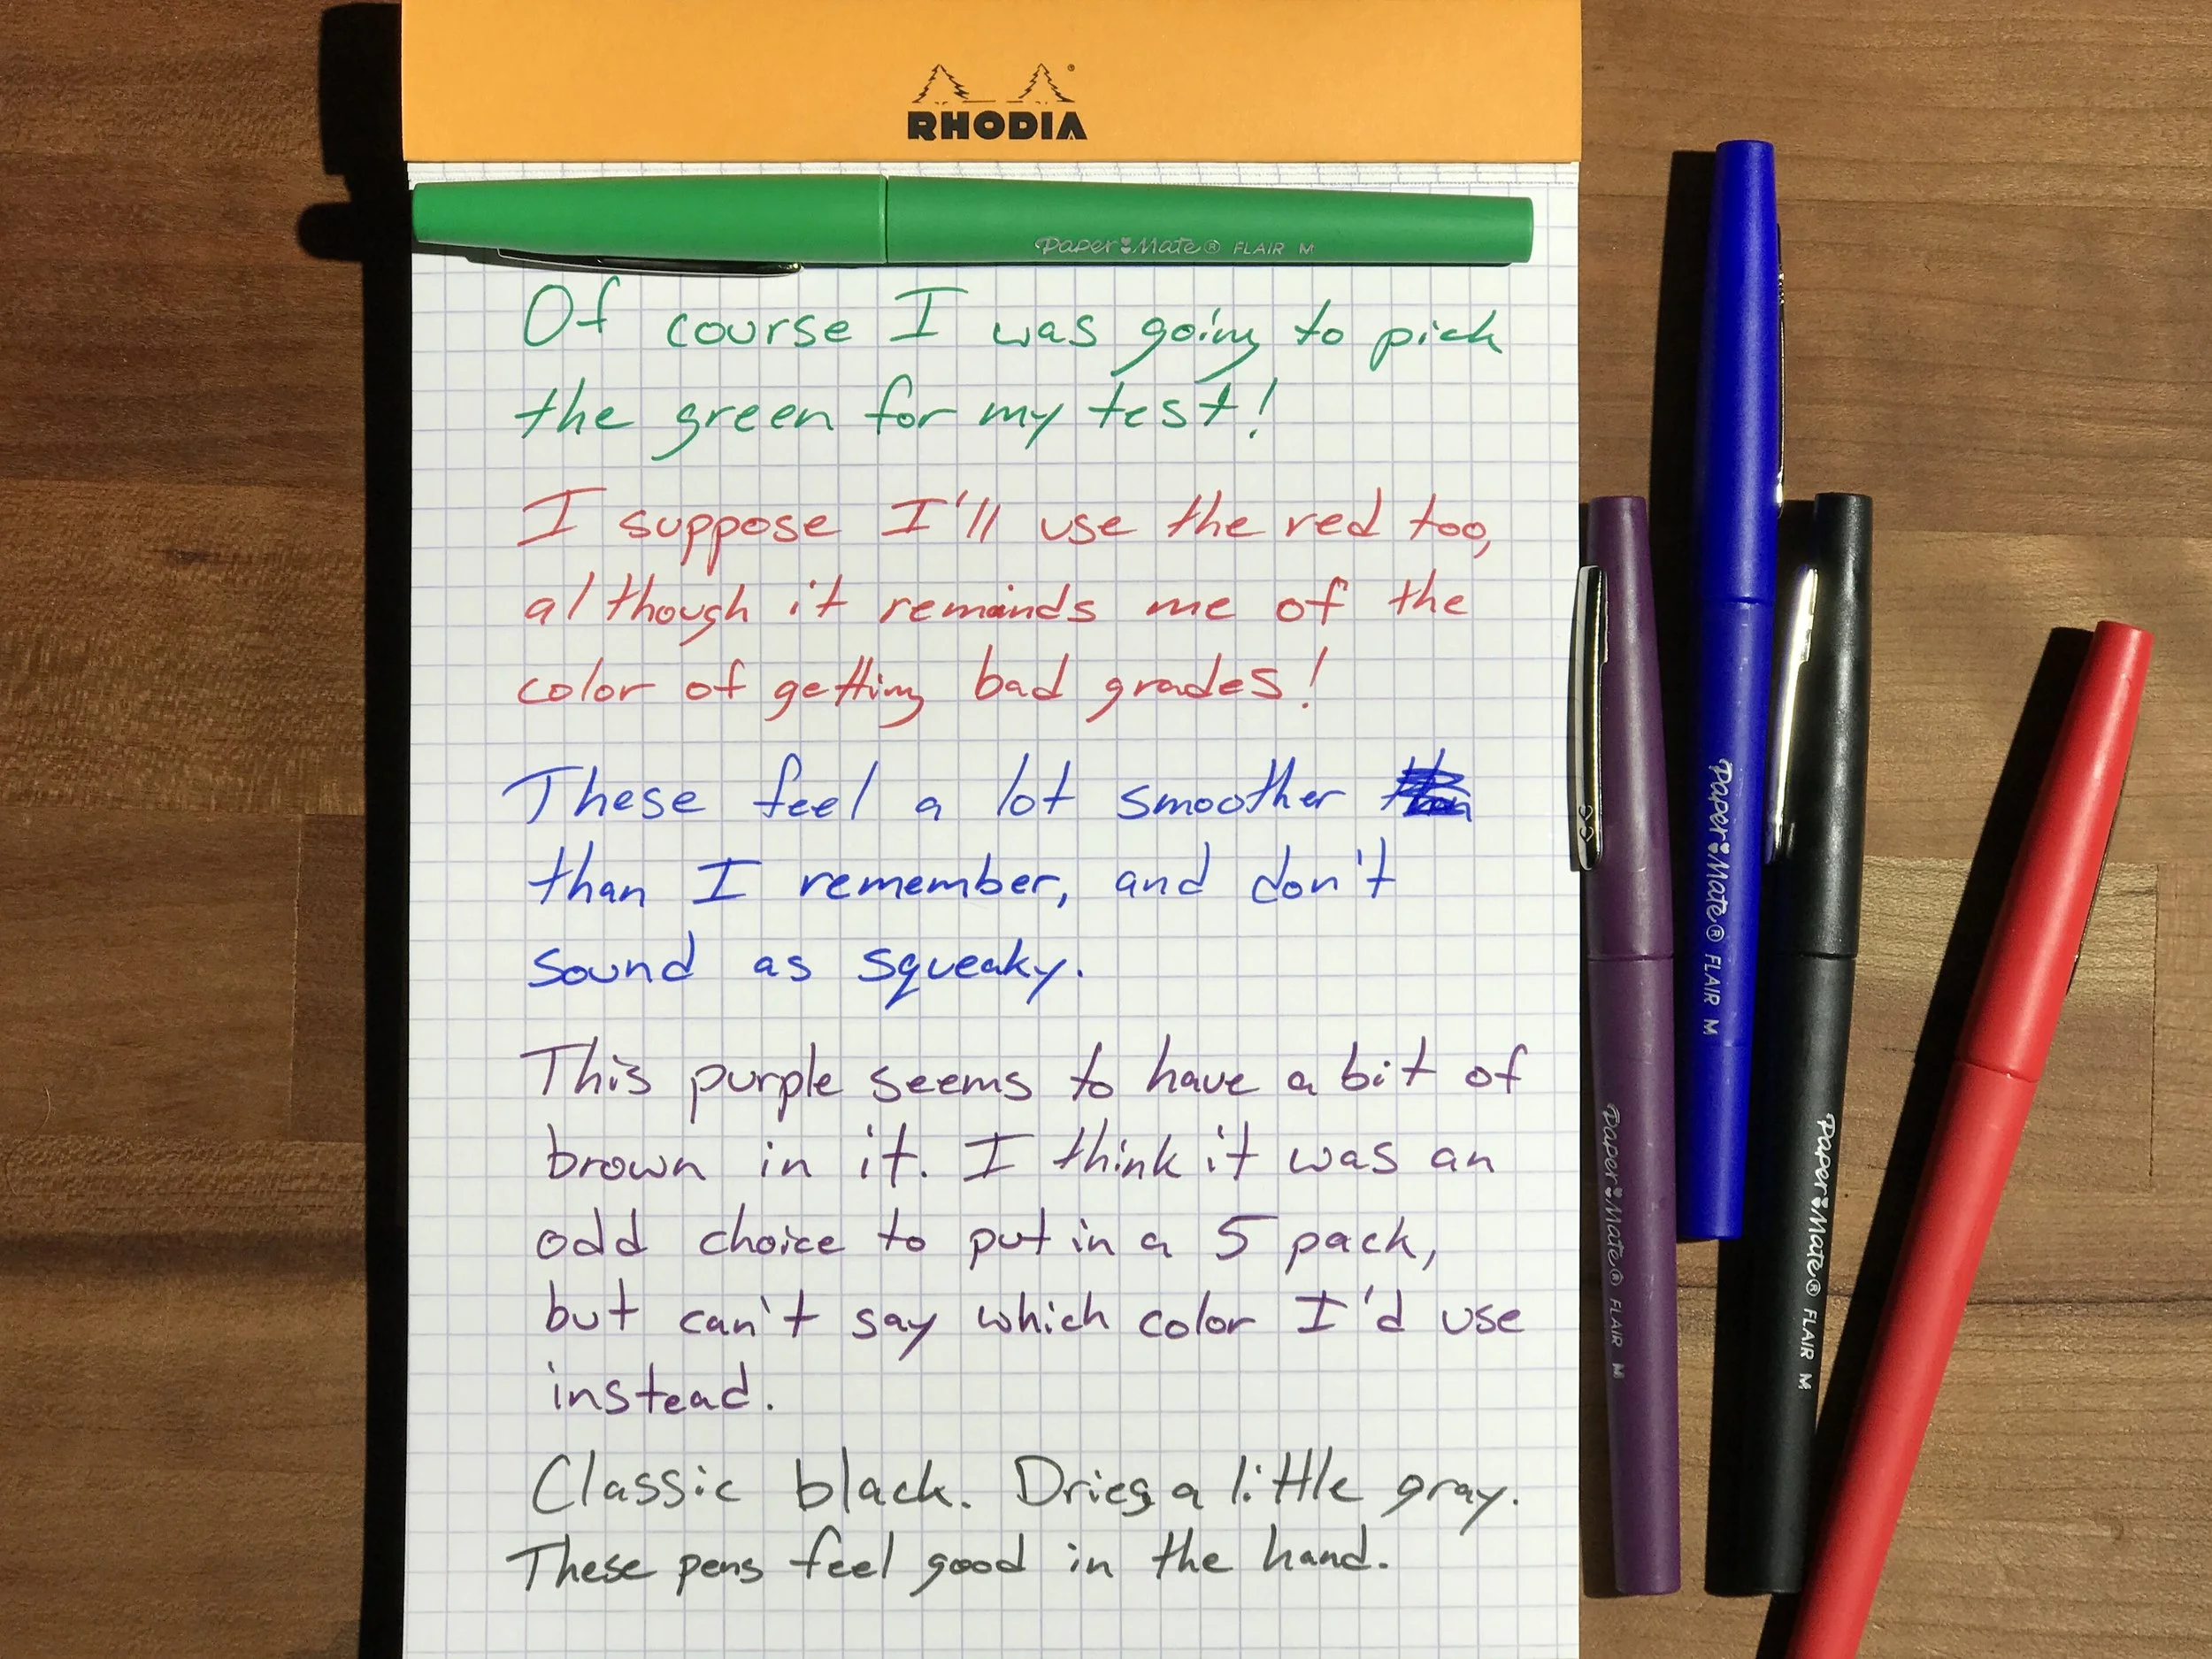 RHODIA
Paper Mate® FLAIR M
Of course I was going to pick
the green for my test!
I suppose I'll use the red too,
although it reminds me of the
color of getting bad grades!
These feel a lot smoother
than I remember, and don't
sound as squeaky.
This purple seems to have a bit of
brown in it. I think it was an
odd choice to put in a 5 pack,
but can't say which color I'd use
instead.
Classic black. Dries a little gray.
These pens feel good in the hand.
Paper Mate® FLAIR M
Paper Mate® FLAIR M
Paper Mate® FLAIR M